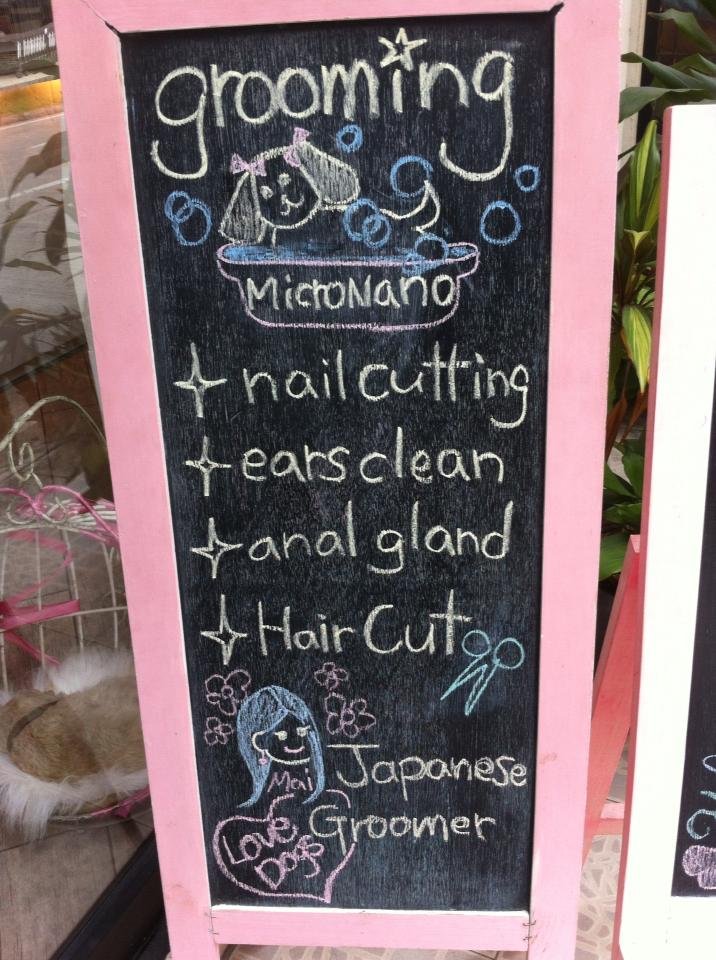 grooming
MicroNano
nail cutting
ears clean
anal gland
Hair Cut
Mai
Japanese
Groomer
Love
Dogs